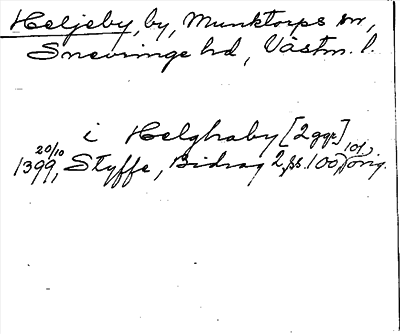 Heljeby, by, Munktorps sn,
Snevringe hd, Västm. l.
i Helghaby [2 ggr]
20/10 1399, Styffe, Bidrag 2, ss. 100, 101, orig.